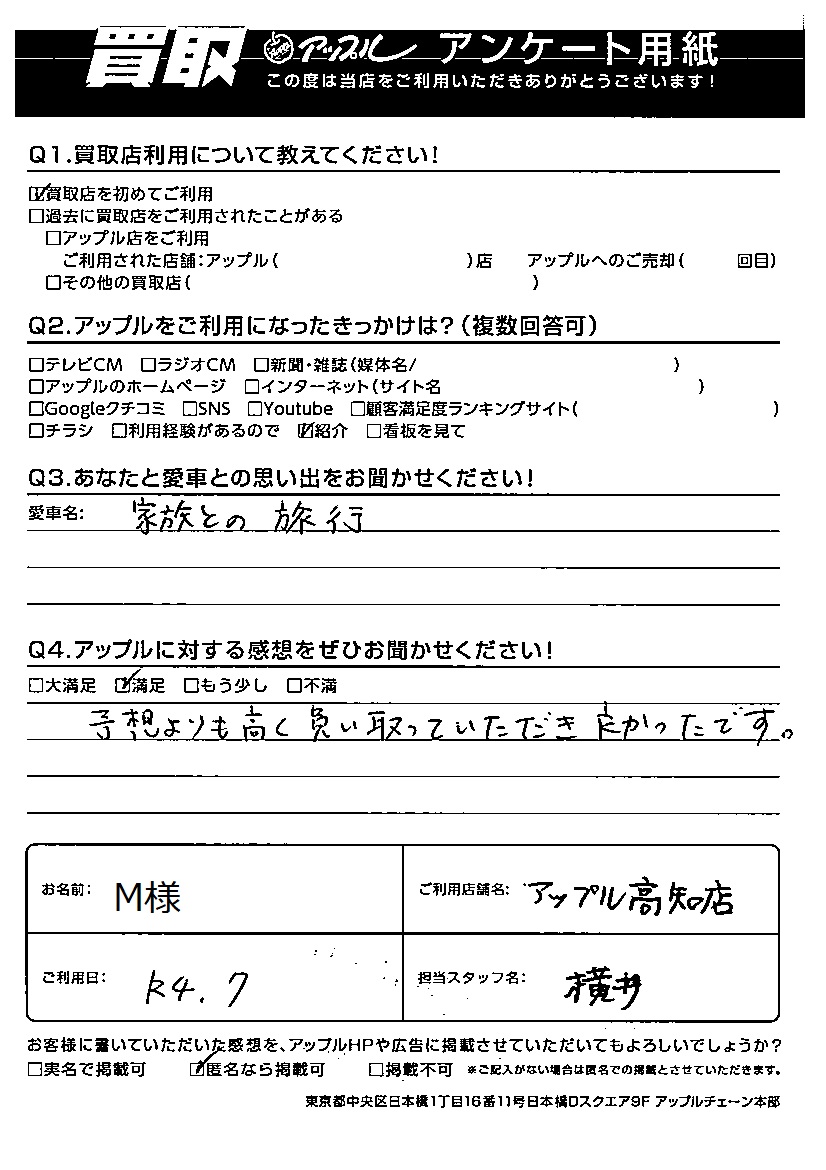 買取 アップル アンケート用紙
この度は当店をご利用いただきありがとうございます！
Q1.買取店利用について教えてください！
☑買取店を初めてご利用
□過去に買取店をご利用されたことがある
□アップル店をご利用
ご利用された店舗：アップル（ ）店 アップルへのご売却（ 回目）
□その他の買取店（ ）
Q2.アップルをご利用になったきっかけは？（複数回答可）
□テレビCM □ラジオCM □新聞・雑誌（媒体名/ ）
□アップルのホームページ □インターネット（サイト名 ）
□Googleクチコミ □SNS □Youtube □顧客満足度ランキングサイト（ ）
□チラシ □利用経験があるので ☑紹介 □看板を見て
Q3.あなたと愛車との思い出をお聞かせください！
愛車名： 家族との旅行
Q4.アップルに対する感想をぜひお聞かせください！
□大満足 ☑満足 □もう少し □不満
予想よりも高く買い取っていただき良かったです。
お名前： M様 ご利用店舗名： アップル高知店
ご利用日： R4.7 担当スタッフ名： 横井
お客様に書いていただいた感想を、アップルHPや広告に掲載させていただいてもよろしいでしょうか？
□実名で掲載可 ☑匿名なら掲載可 □掲載不可 ※ご記入がない場合は匿名での掲載とさせていただきます。
東京都中央区日本橋1丁目16番11号日本橋Dスクエア9F アップルチェーン本部